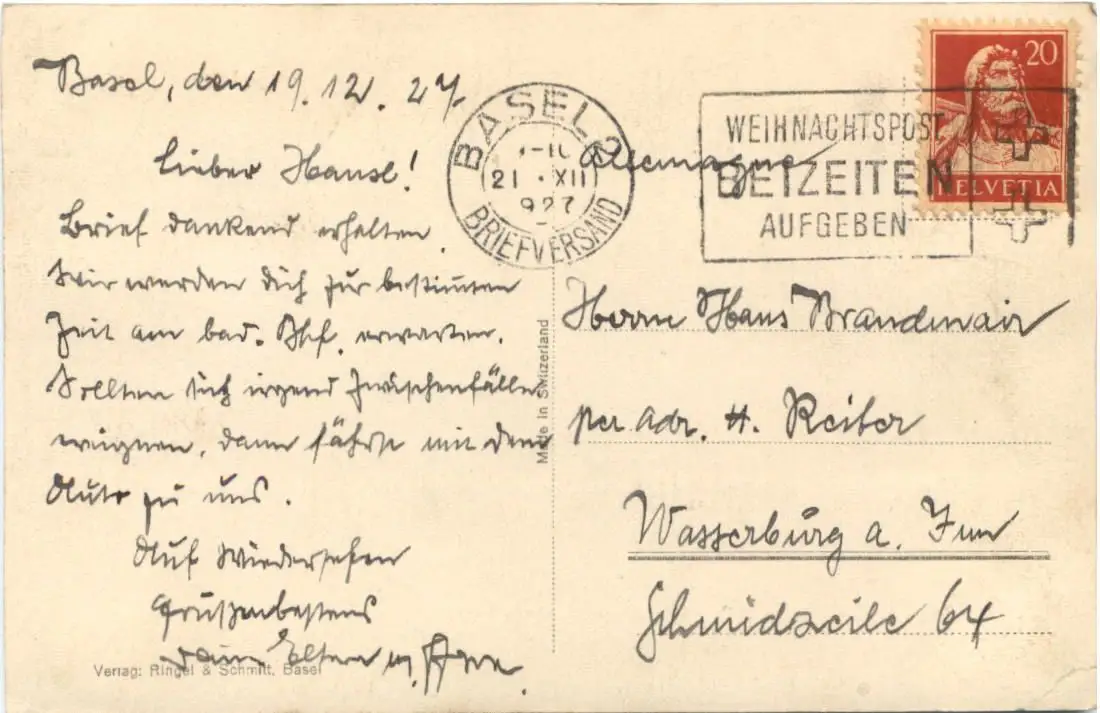 Basel, den 19.12.27.
Lieber Hansl!
Brief dankend erhalten.
Wir werden dich zur bestimmten
Zeit am bad. Bhf. erwarten.
Sollten sich irgend Zwischenfälle
ereignen, dann fährst mit dem
Auto zu uns.
Auf Wiedersehen
Grüßen bestens
Deine Eltern u.
Verlag: Ringel & Schmitt, Basel
Made in Switzerland
BASEL 2
21. XII
927
BRIEFVERSAND
WEIHNACHTSPOST
BEIZEITEN
AUFGEBEN
20
HELVETIA
Allemagne
Herrn Hans Brandmair
per Adr. H. Reiter
Wasserburg a. Inn
Schmidzeile 64